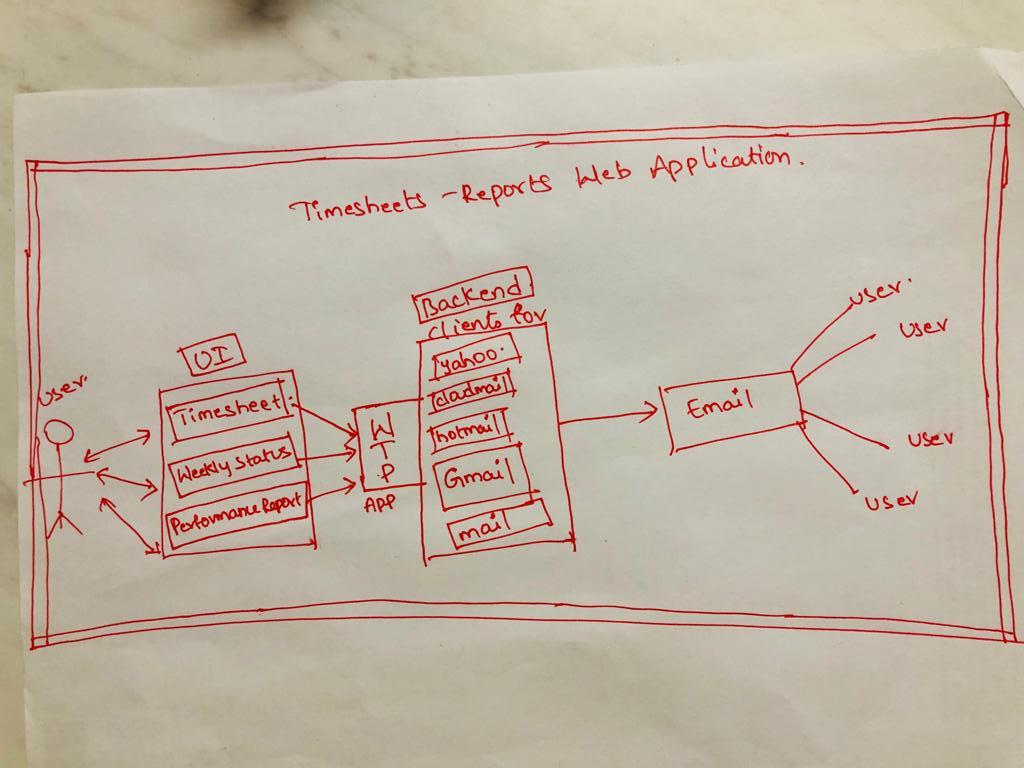 Timesheets - Reports Web Application.
user.
UI
Timesheet:
Weekly Status
Performance Report
WTP
APP
Backend
clients for
yahoo.
cloudmail
hotmail
Gmail
mail
Email
user.
user
user
user